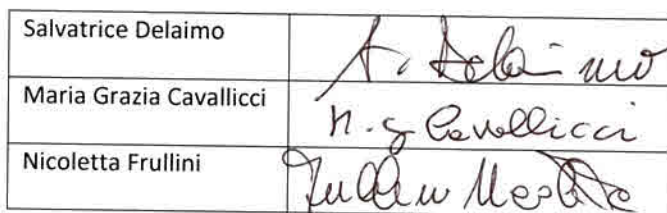 Salvatrice Delaimo S. Delaimo
Maria Grazia Cavallicci M. G Cavallicci
Nicoletta Frullini Frullini